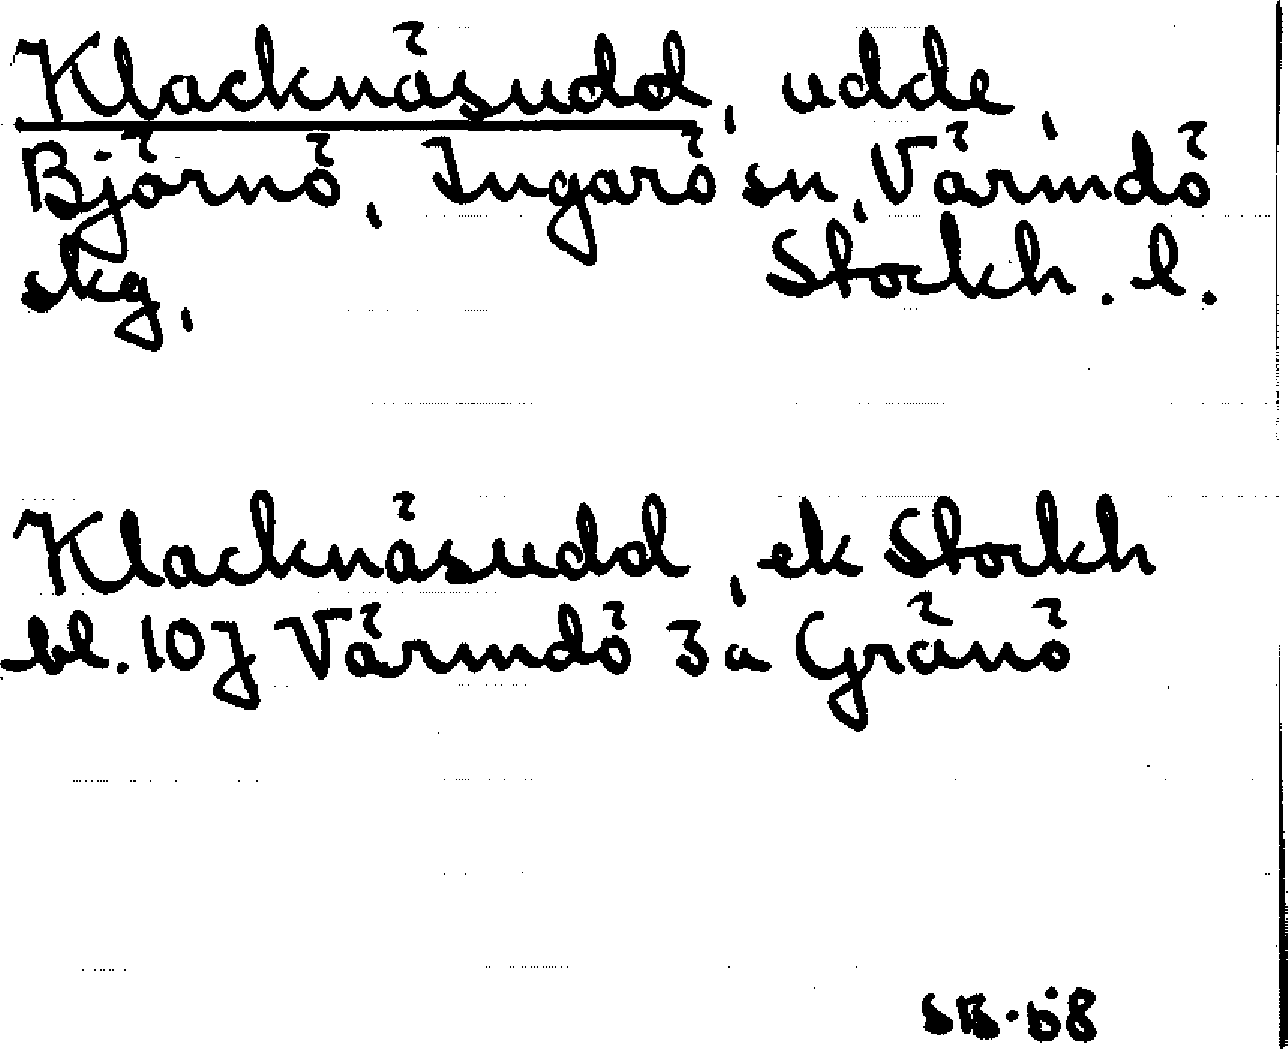 Klacknäsudd, udde,
Björnö, Ingarö sn, Värmdö
skg, Stockh. l.
Klacknäsudd, ek Stockh
bl. 107 Värmdö 3a Gränö
SB·68